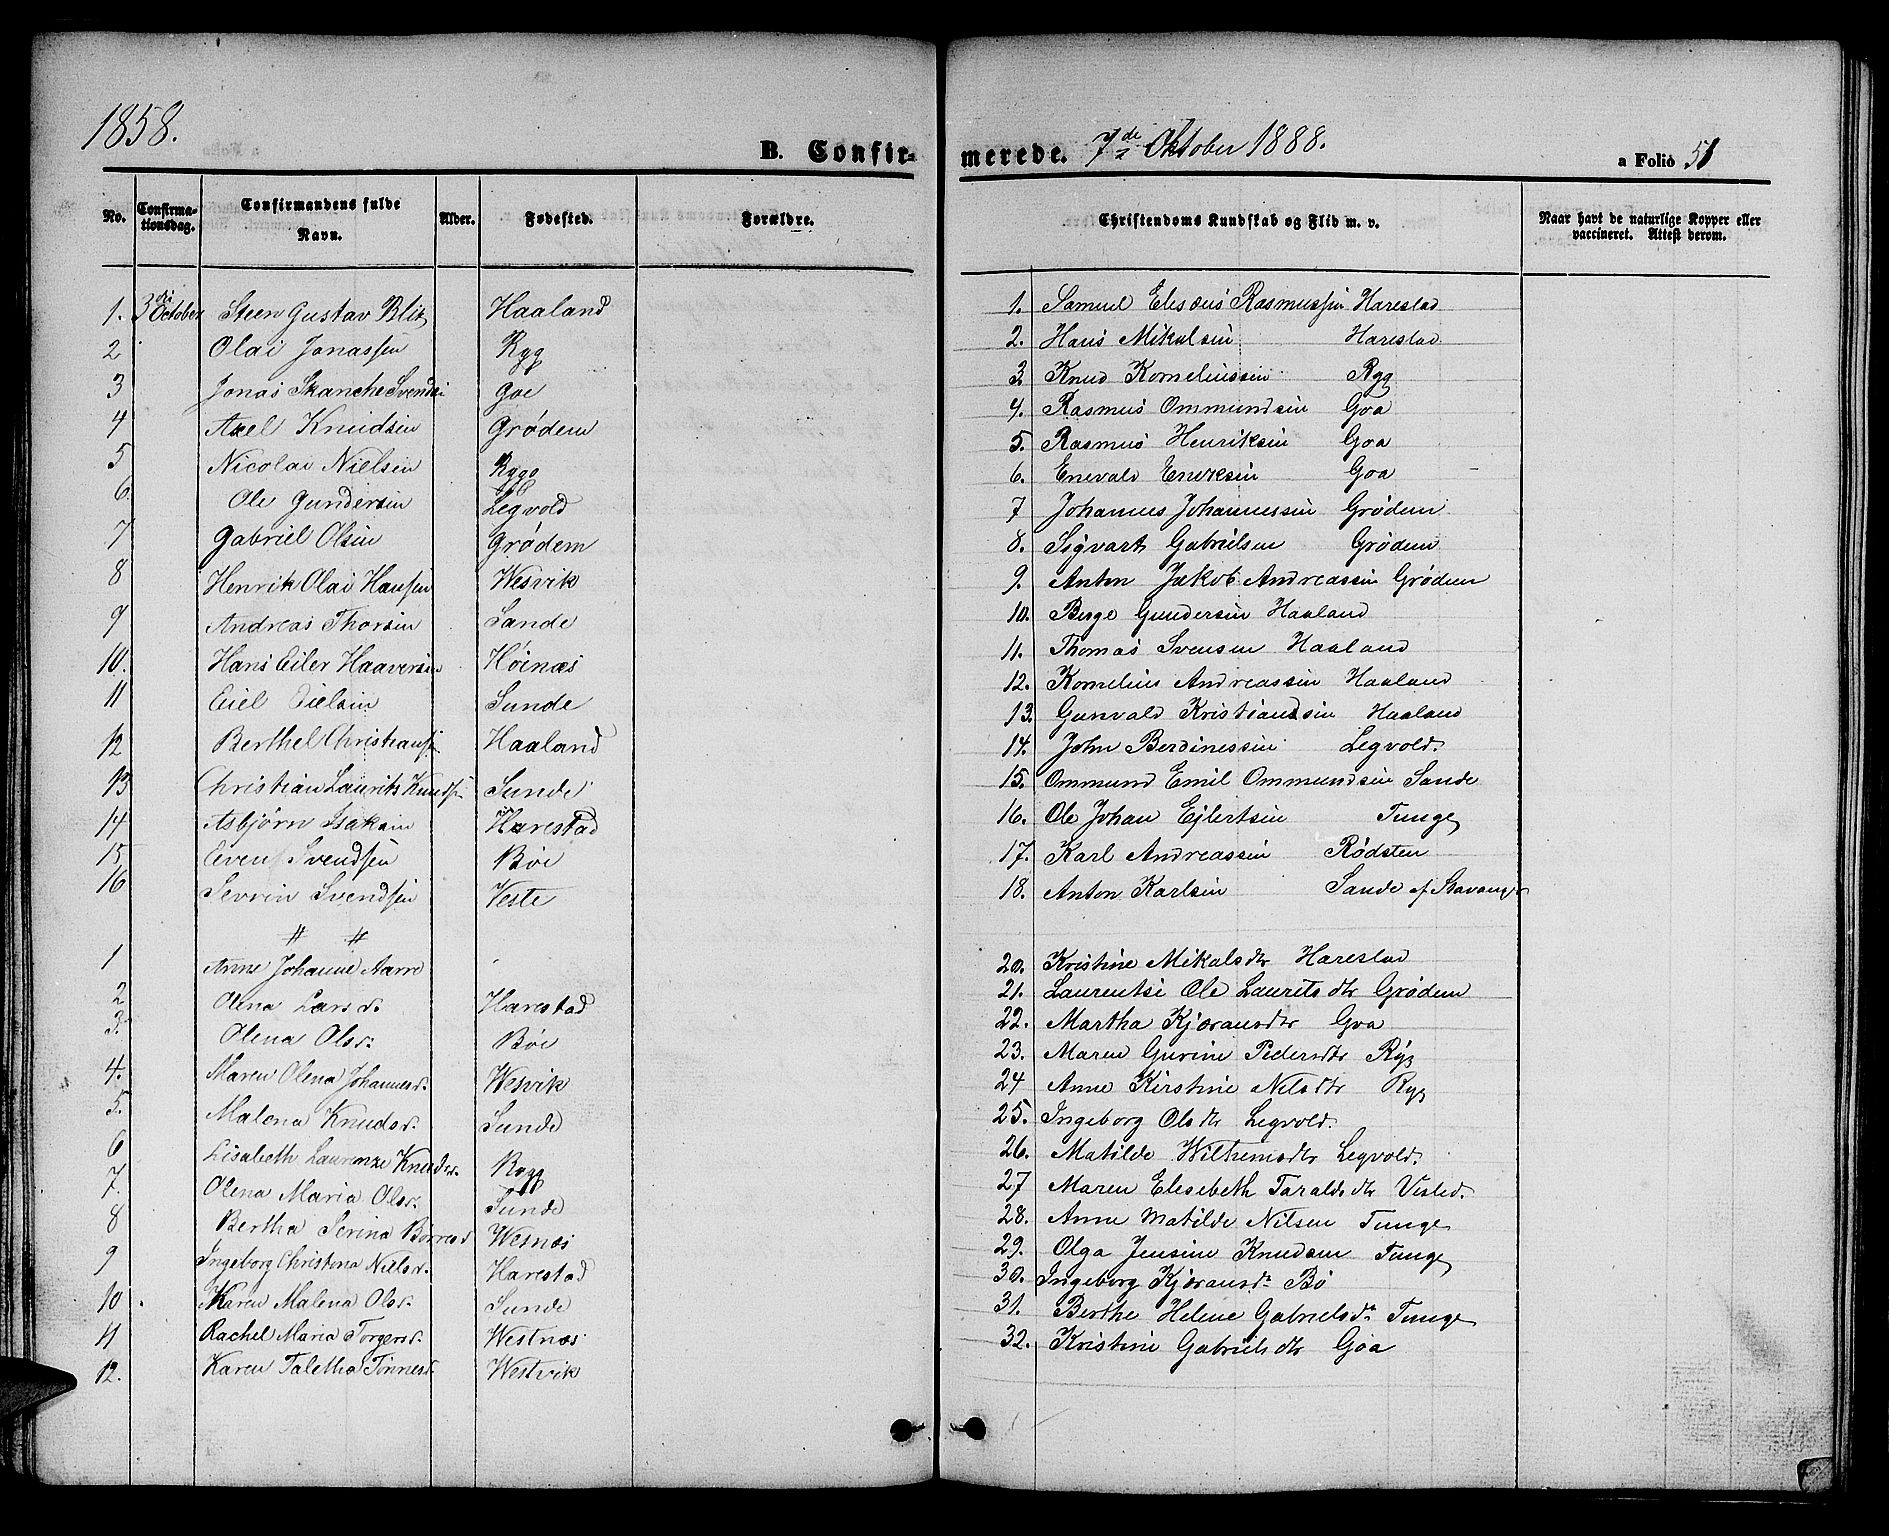 1858.
B. Confir-
No. Confirma-tionsdag. Confirmandens fulde Navn. Alder. Fødested. Forældre.
1. 3die October Steen Gustav Blix Haaland
2 Olai Jonassen Ryg
3 Jonas Skanche Svendsen Goe
4 Axel Knudsen Grødem
5 Nicolai Nielsen Rygg
6. Ole Gundersen Legvold
7 Gabriel Olsen Grødem
8 Henrik Olai Hansen Wesvik
9 Andreas Thorsen Sande
10. Hans Eiler Haaversen Høinæs
11 Eiel Eielsen Sunde
12 Berthel Christiansen Haaland
13 Christian Laurits Knudsen Sunde
14 Asbjørn Isaksen Harestad
15 Even Svendsen Bøe
16 Sevrin Svendsen Veste
1 Anne Johanne Aarre
2. Olena Larsd. Harestad
3. Olena Olsd. Bøe
4. Maren Olena Johannesd. Wesvik
5. Malena Knudsd. Sunde
6 Lisabeth Laurenze Knudsd. Rygg
7. Olena Maria Olsd. Sunde
8 Bertha Serina Børresd Wesnæs
9 Ingeborg Christena Nielsd. Harestad
10. Karen Malena Olsd. Sunde
11 Rachel Maria Torgersd. Westnæs
12. Karen Taletha Tønnesd. Westvik
merede. 7de Oktober 1888.
a Folio 51
Christendoms Kundskab og Flid m. v. Naar havt de naturlige Kopper eller vaccineret. Attest derom.
1. Samuel Elesæus Rasmussen Harestad
2. Hans Mikalsen Harestad
3 Knud Korneliussen Ryg
4. Rasmus Ommundsen Goa
5. Rasmus Henriksen Goa
6. Enevald Eriksen Goa
7 Johannes Johannessen Grødem
8. Sigvart Gabrielsen Grødem
9. Anton Jakob Andreassen Grødem
10. Berge Gundersen Haaland
11. Thomas Svensen Haaland
12. Kornelius Andreassen Haaland
13. Gunvald Kristiansen Haaland
14. John Berdinessen Legvold.
15. Ommund Emil Ommundsen Sande
16. Ole Johan Ejlertsen Tunge
17. Karl Andreassen Rødsten
18. Anton Karlsen Sande af Stavanger
20. Kristine Mikalsdtr Harestad
21. Laurentse Ole Lauritsdtr Grødem
22. Martha Kjøransdtr Goa
23. Maren Gurine Pedersdtr Ryg
24 Anne Kirstine Nilsdtr Ryg
25. Ingeborg Olsdtr Legvold.
26. Matilde Wilhemsdtr Legvold.
27 Maren Elesebeth Taraldsdtr Visted.
28. Anne Matilde Nilsen Tunge
29. Olga Jensine Knudsen Tunge
30. Ingeborg Kjøransdr. Bø
31. Berthe Helene Gabrielsdr Tunge
32. Kristine Gabrielsdtr Goa